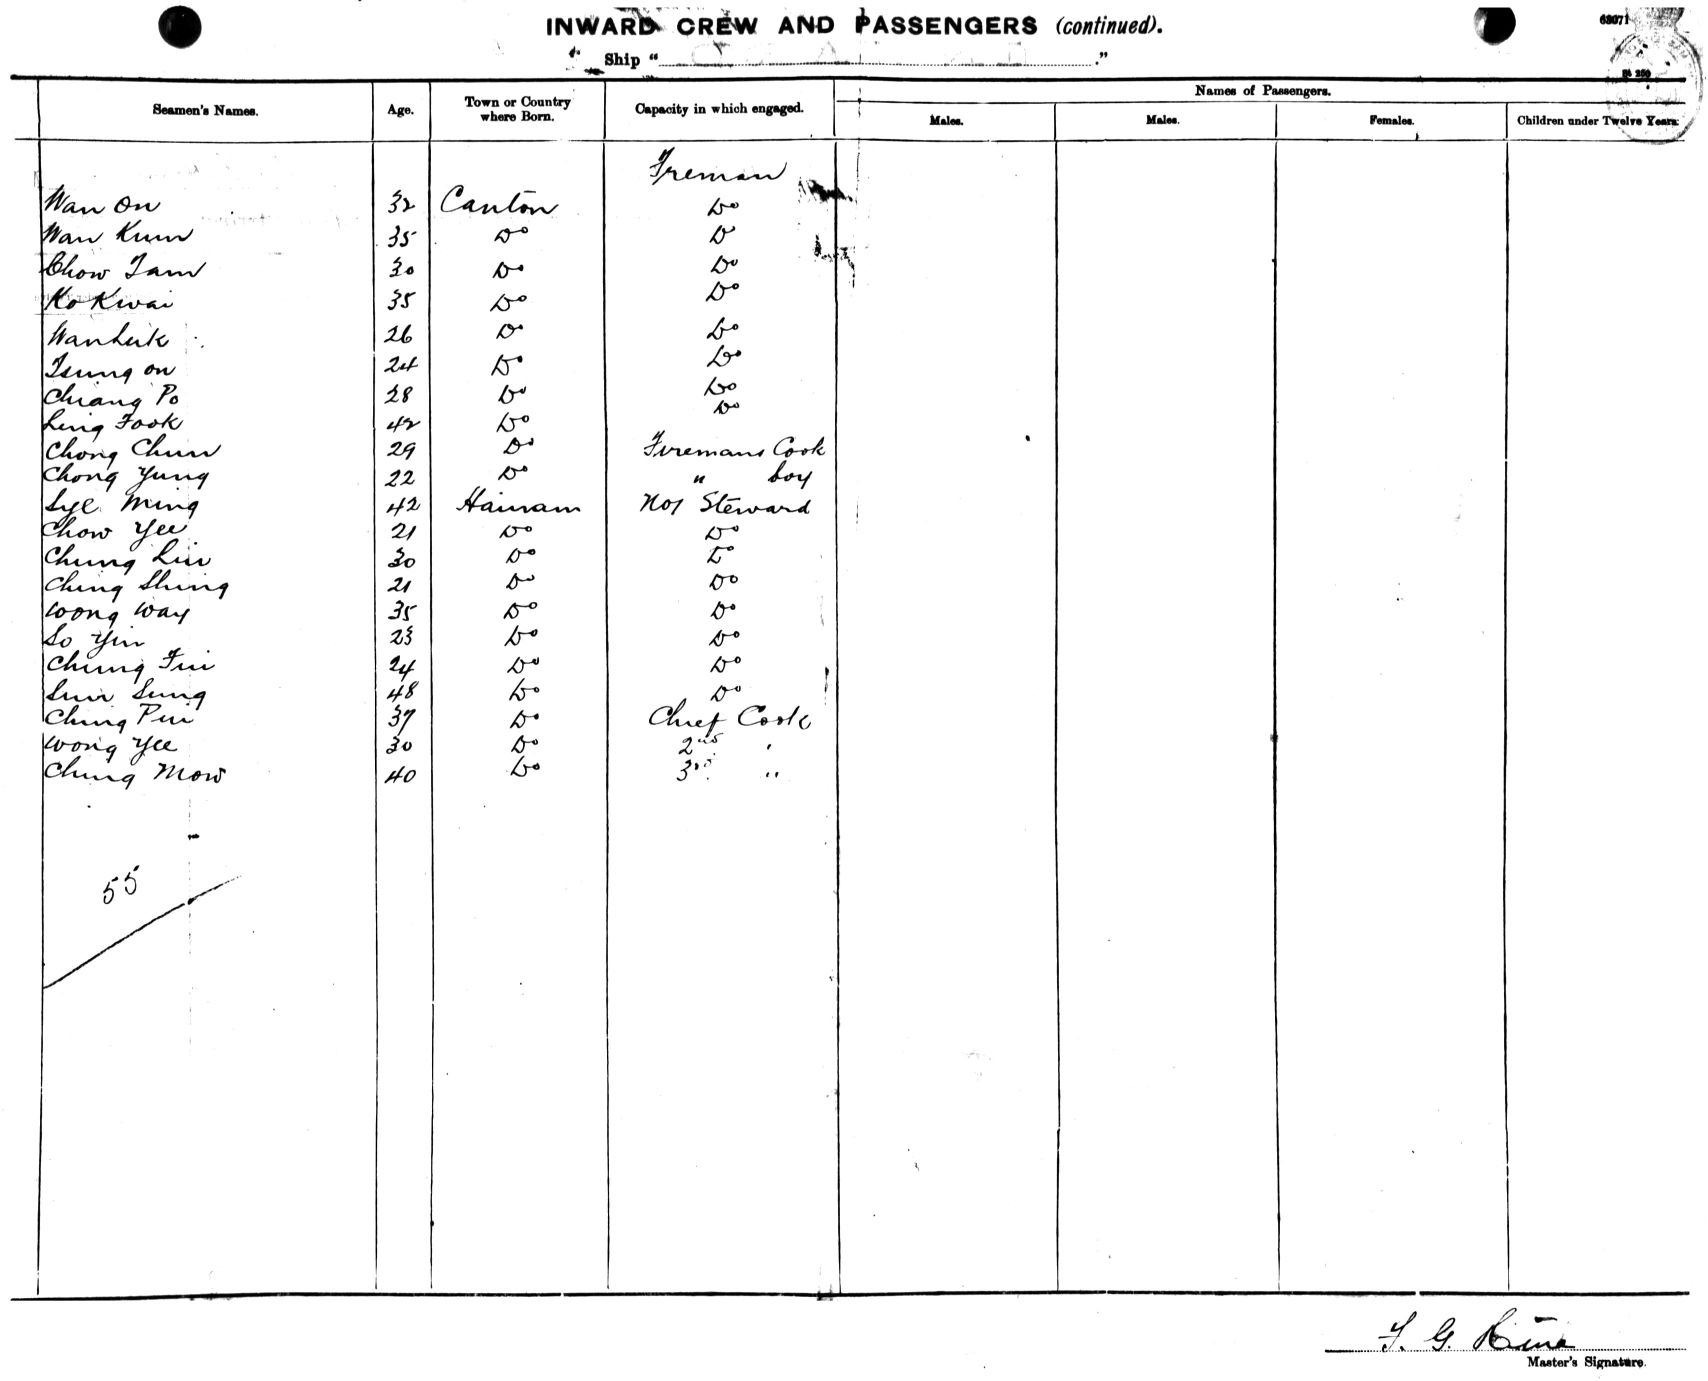 INWARD CREW AND PASSENGERS (continued).
63071
Ship " ."
Seamen's Names. Age. Town or Country where Born. Capacity in which engaged. Names of Passengers.
Males. Males. Females. Children under Twelve Years.
Fireman
Wan On 32 Canton Do
Wan Kum 35 Do Do
Chow Tam 30 Do Do
Ko Kwai 35 Do Do
Wan Luk 26 Do Do
Tsung on 24 Do Do
Chiang Po 28 Do Do
Ling Fook 42 Do Do
Chong Chun 29 Do Firemans Cook
Chong Yung 22 Do " boy
Sye Ming 42 Hainam No1 Steward
Chow Yee 21 Do Do
Chung Lin 30 Do Do
Ching Shing 21 Do Do
Wong Way 35 Do Do
So Yin 23 Do Do
Chung Fui 24 Do Do
Sun Sung 48 Do Do
Ching Pui 37 Do Chief Cook
Wong Yee 30 Do 2nd "
Chung Mow 40 Do 3rd "
55
Master's Signature.